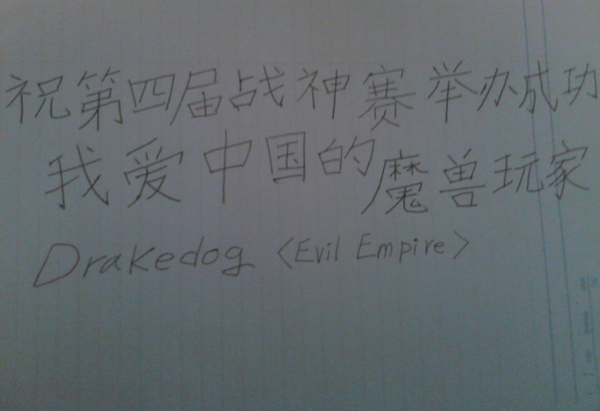 祝第四届战神赛举办成功
我爱中国的魔兽玩家
Drakedog <Evil Empire>